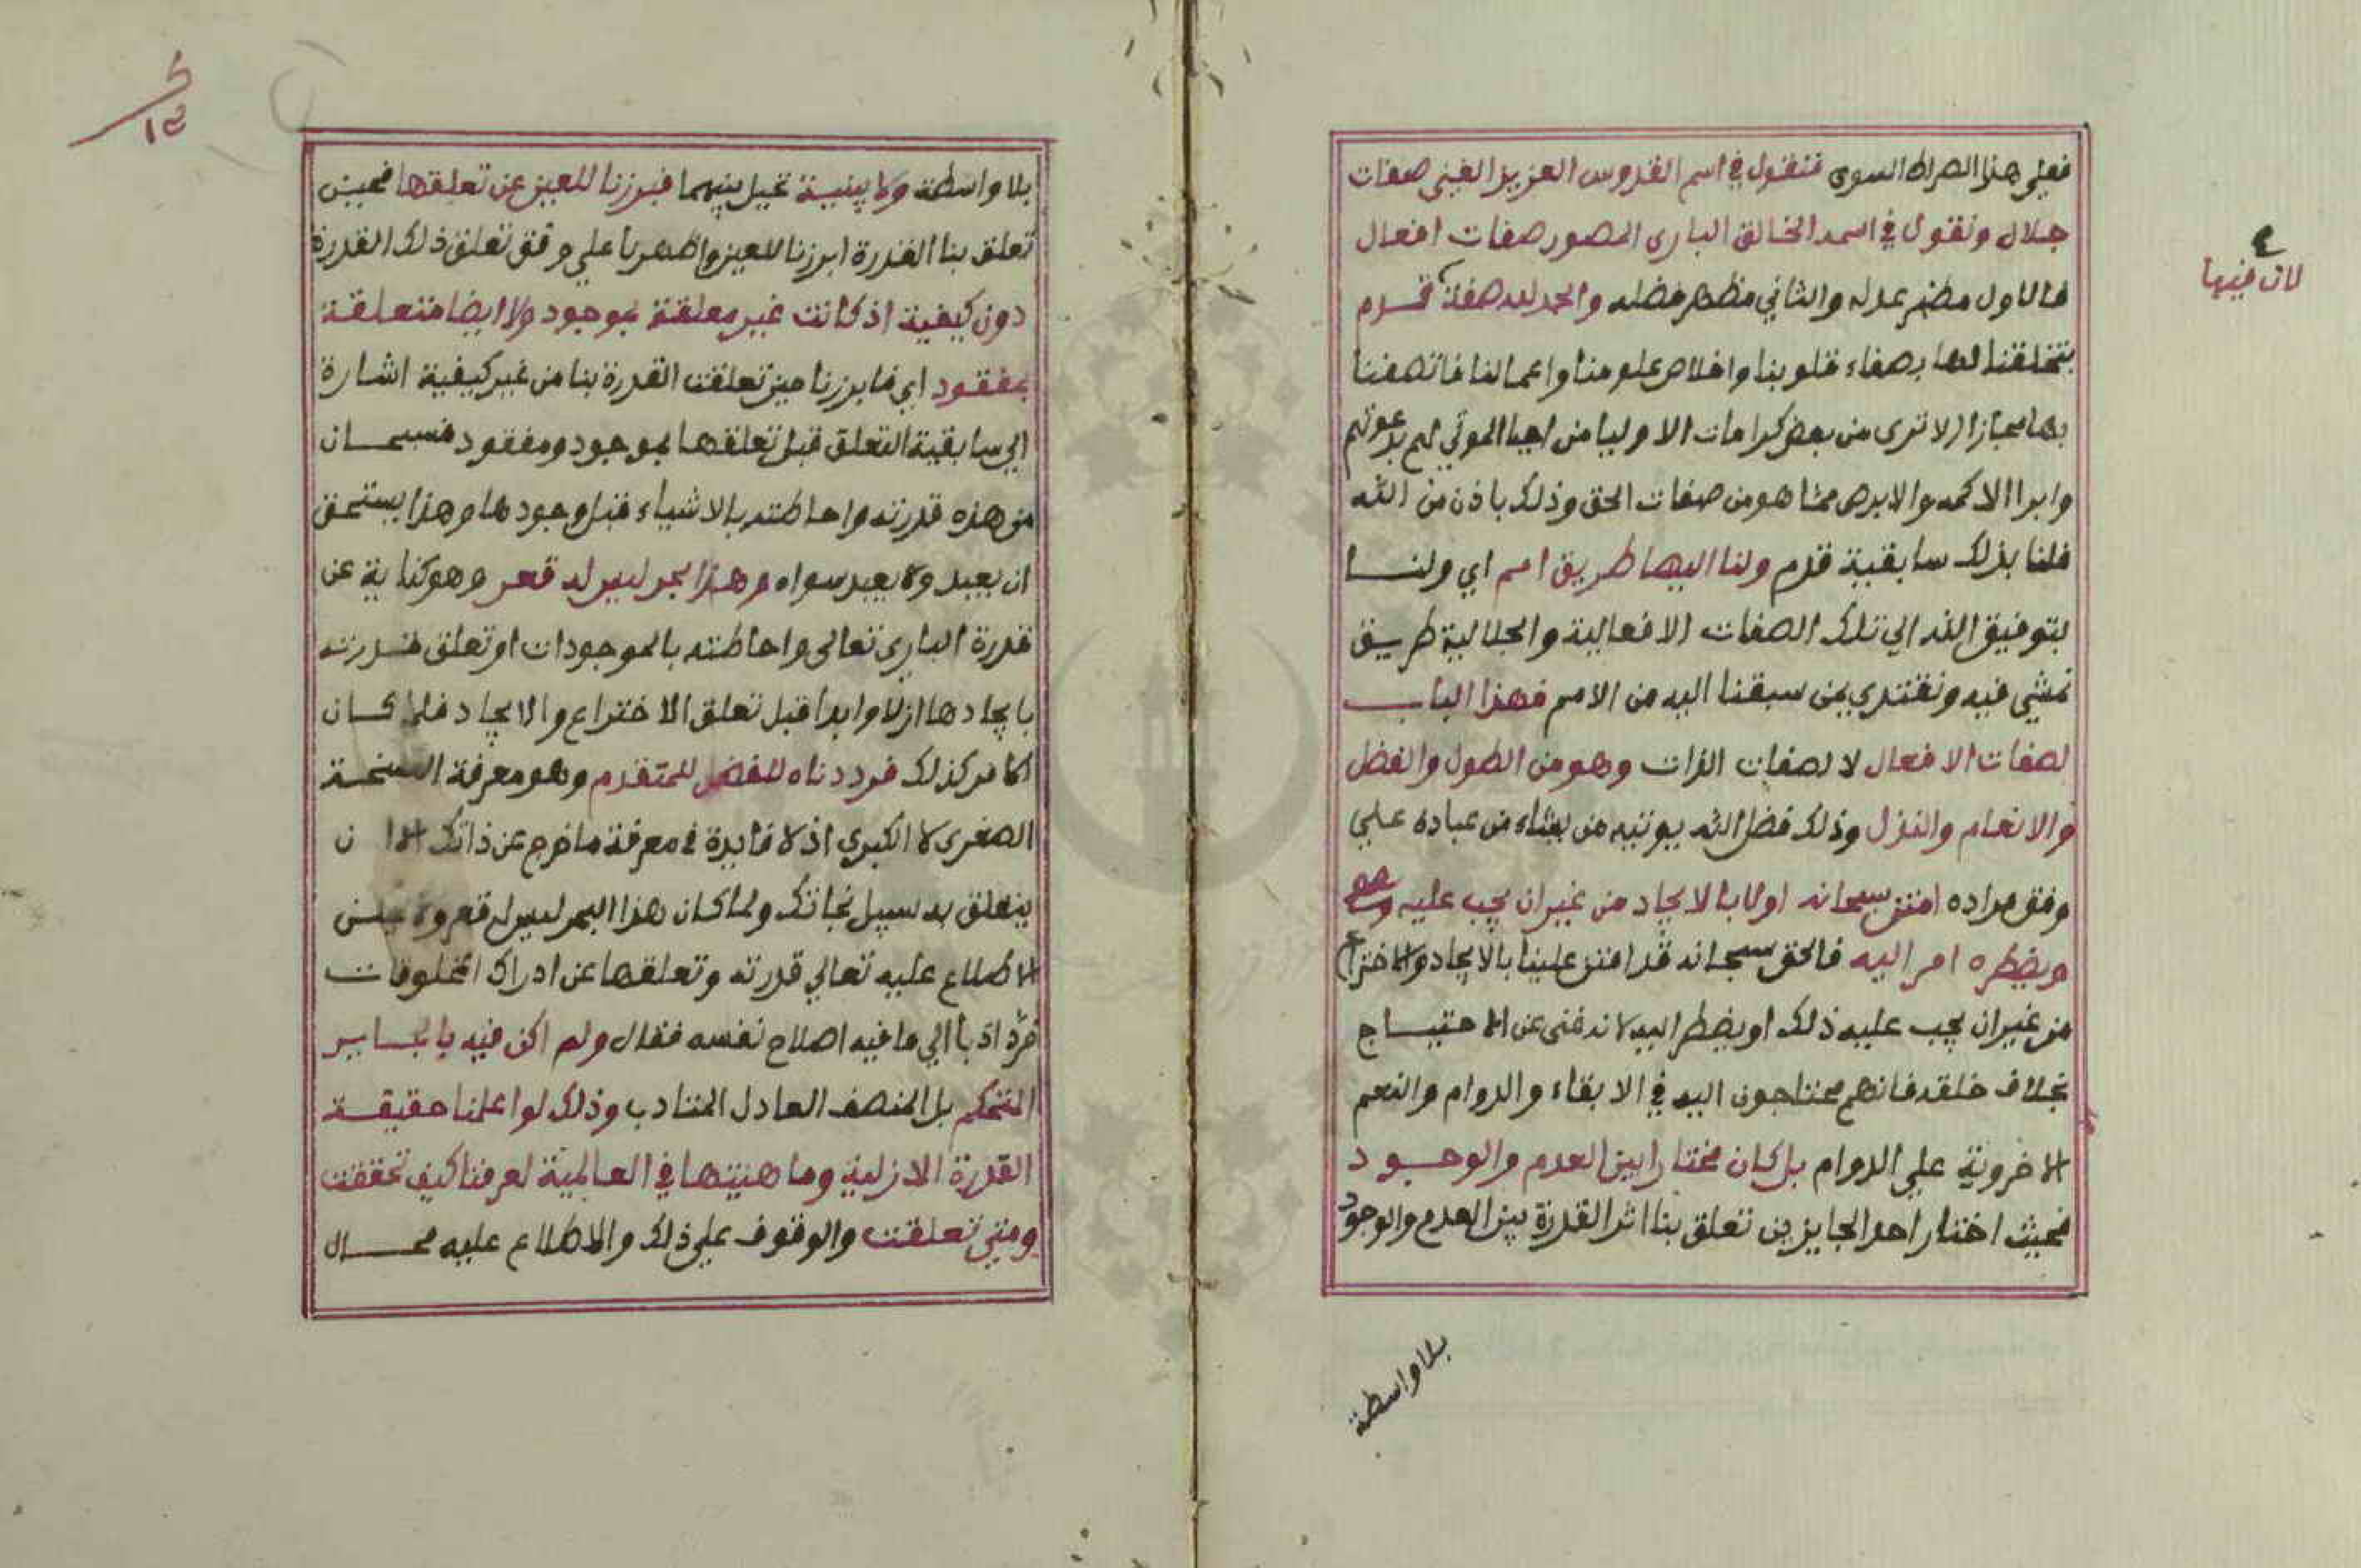 فعلي هذا الصراط السوى فنقول في اسم القدوس العزيز الغني صفات
جلال ونقول في اسمه الخالق الباري المصور صفات افعال
فالاول مظهر عدله والثاني مظهر فضله والحمد لله صفة قدم
بتخلقنا لها بصفاء قلوبنا واخلاص علومنا واعمالنا فاتصفنا
بها مجازا الا ترى من بعض كرامات الاوليا من احيا الموتي لهم بدعوتهم
وابرا الاكمه والابرص مما هو من صفات الحق وذلك باذن من الله
فلنا بذلك سابقية قدم ولنا اليها طريق امم اي ولنا
بتوفيق الله الي تلك الصفات الافعالية والجلالية طريق
نمشي فيه ونقتدي بمن سبقنا اليه من الامم فهذا الباب
لصفات الافعال لا لصفات الذات وهو من الطول والفضل
والانعام والنزل وذلك فضل الله يوتيه من يشاء من عباده علي
وفق مراده امتن سبحانه اولا بالايجاد من غير ان يجب عليه
ويضطره امر اليه فالحق سبحانه قد امتن علينا بالايجاد والاختراع
من غير ان يجب عليه ذلك او يضطر اليه لانه غنى عن الاحتياج
بخلاف خلقه فانهم محتاجون اليه في الابقاء والدوام والنعم
الاخروية علي الدوام بل كان مختارا بين العدم والوجود
فحيث اختار احد الجايزين تعلق بنا اثر القدرة بين العدم والوجود
بلا واسطة
لان فيها
بلا واسطة ولا بينية تخيل بينهما فبرزنا للعين عن تعلقها فحين
تعلق بنا القدرة ابرزنا للعين واظهرنا علي وفق تعلق ذلك القدرة
دون كيفية اذ كانت غير معلقة بموجود ولا ايضا متعلقة
بمفقود اي فابرزنا حين تعلقت القدرة بنا من غير كيفية اشارة
الي سابقية التعلق قبل تعلقها بموجود ومفقود فسبحان
من هذه قدرته واحاطته بالاشياء قبل وجودها وهذا يستحق
ان يعبد ولا يعبد سواه وهذا بحر ليس له قعر وهو كناية عن
قدرة الباري تعالى واحاطته بالموجودات او تعلق قدرته
بايجادها ازلا وابدا قبل تعلق الاختراع والايجاد فلما كان
الامر كذلك فرددناه للفص المتقدم وهو معرفة النسخة
الصغرى لا الكبري اذ لا فايدة في معرفة ما خرج عن ذاتك الا ان
يتعلق به سبيل نجاتك ولما كان هذا البحر ليس له قعر
الاطلاع عليه تعالي قدرته وتعلقها عن ادراك المخلوقات
فرد اذبا الي ما فيه اصلاح نفسه فقال ولم اكن فيه بالجاير
المتحكم بل المنصف العادل المتادب وذلك لو اعلمنا حقيقة
القدرة الازلية وماهيتها في العالمية لعرفنا كيف تحققت
ومتي تعلقت والوقوف علي ذلك والاطلاع عليه محال